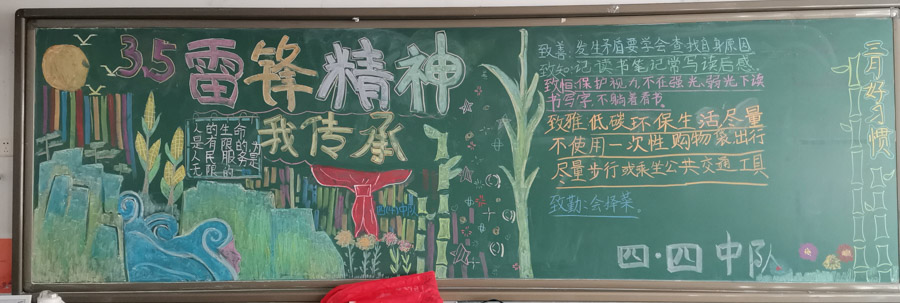 3.5 雷锋精神
我传承
人的生命
是有限的
人民服务
无限的
四(4)中队
致善:发生矛盾要学会查找自身原因
致知:记读书笔记常写读后感
致恒:保护视力,不在强光、弱光下读
书写字,不躺着看书
致雅:低碳环保生活尽量
不使用一次性购物袋出行
尽量步行或乘坐公共交通工具
致勤:会择菜。
四·四中队
三月好习惯